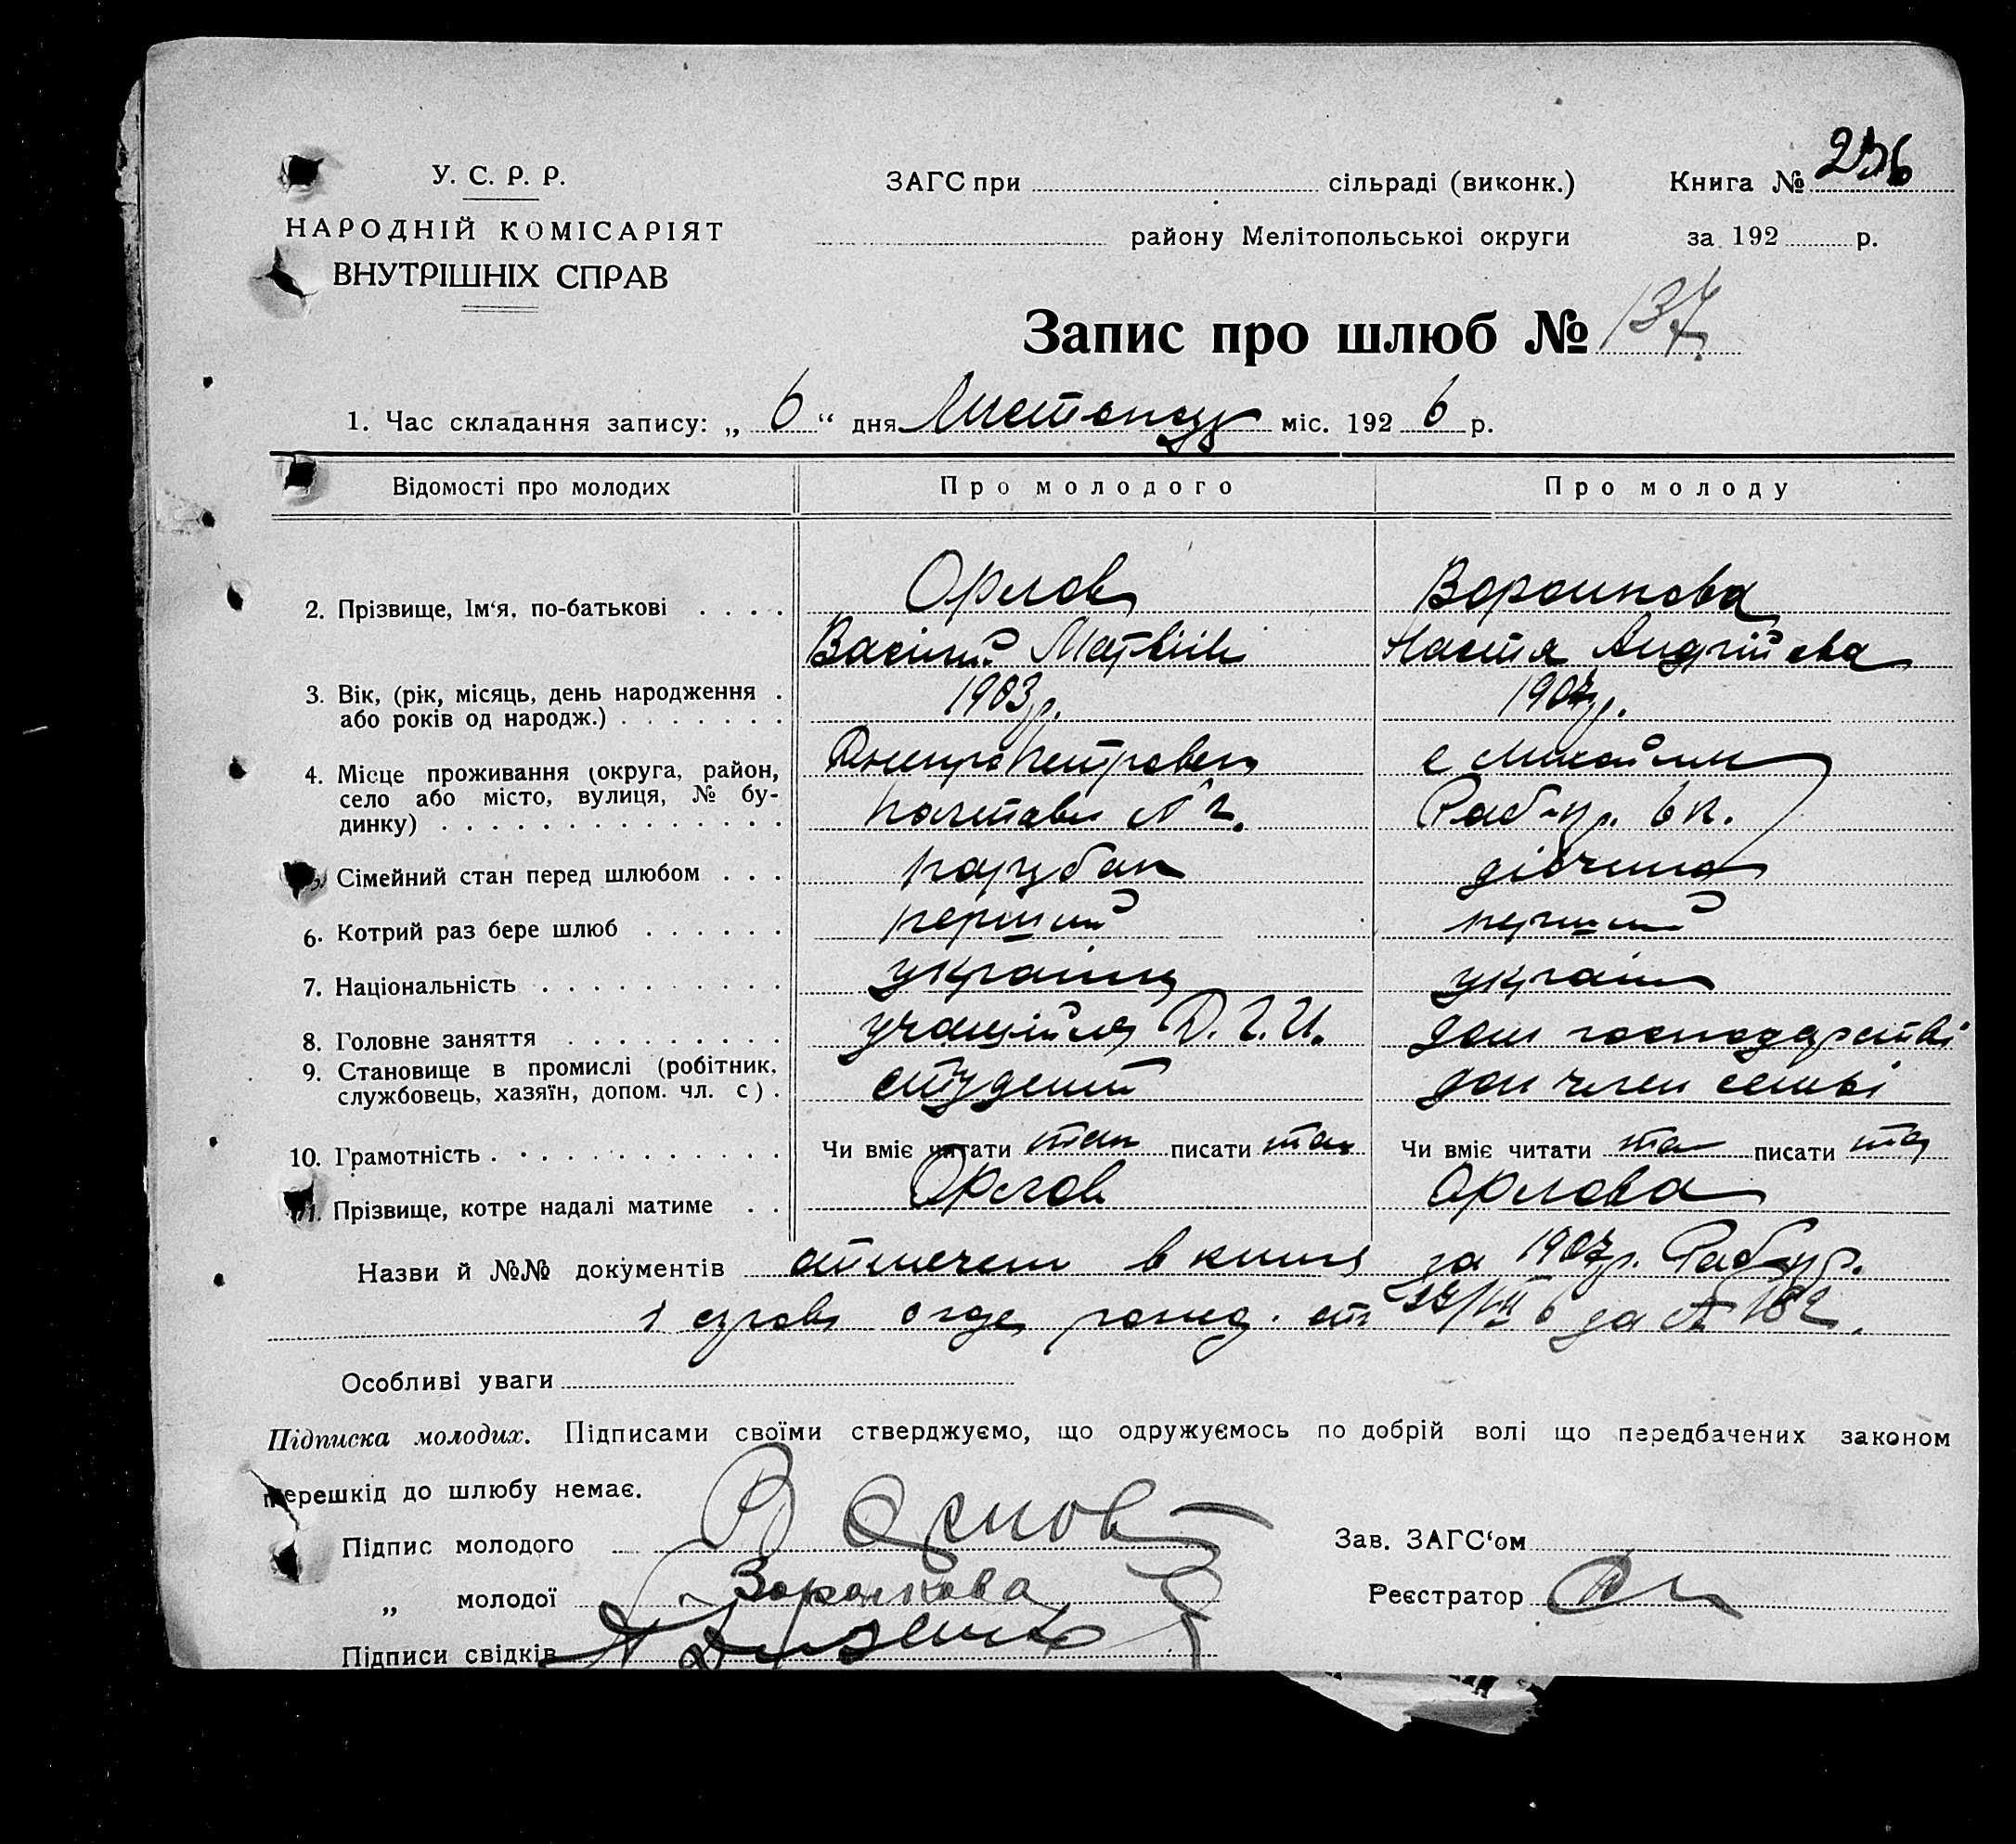 У. С. Р. Р.
НАРОДНІЙ КОМІСАРІЯТ
ВНУТРІШНІХ СПРАВ
ЗАГС при сільраді (виконк.)
району Мелітопольської округи
Книга №
за 192 р.
Запис про шлюб № 137
1. Час складання запису: „ 6 “ дня Листопаду міс. 192 6 р.
Відомості про молодих Про молодого Про молоду
2. Прізвище, Ім‘я, по-батькові Орлов Воронкова
Василий Матвіїв Настя Андрійова
3. Вік, (рік, місяць, день народження 1903 р. 1907 р.
або років од народж.)
4. Місце проживання (округа, район, с Михайлик
село або місто, вулиця, № бу-
динку) Полтавск №
Сімейний стан перед шлюбом парубак дівчина
6. Котрий раз бере шлюб перший перший
7. Національність україн україн
8. Головне заняття Д. Г. И. дом господарстві
9. Становище в промислі (робітник, студент дом член семьі
службовець, хазяїн, допом. чл. с).
10. Грамотність Чи вміє читати так писати так Чи вміє читати та писати та
11. Прізвище, котре надалі матиме Орлов Орлова
Назви й №№ документів отмечен в книге за 1907 р.
за № 182.
Особливі уваги
Підписка молодих. Підписами своїми стверджуємо, що одружуємось по добрій волі що передбачених законом
перешкід до шлюбу немає.
Підпис молодого В Орлов
Зав. ЗАГС‘ом
„ молодої Воронкова
Реєстратор
Підписи свідків